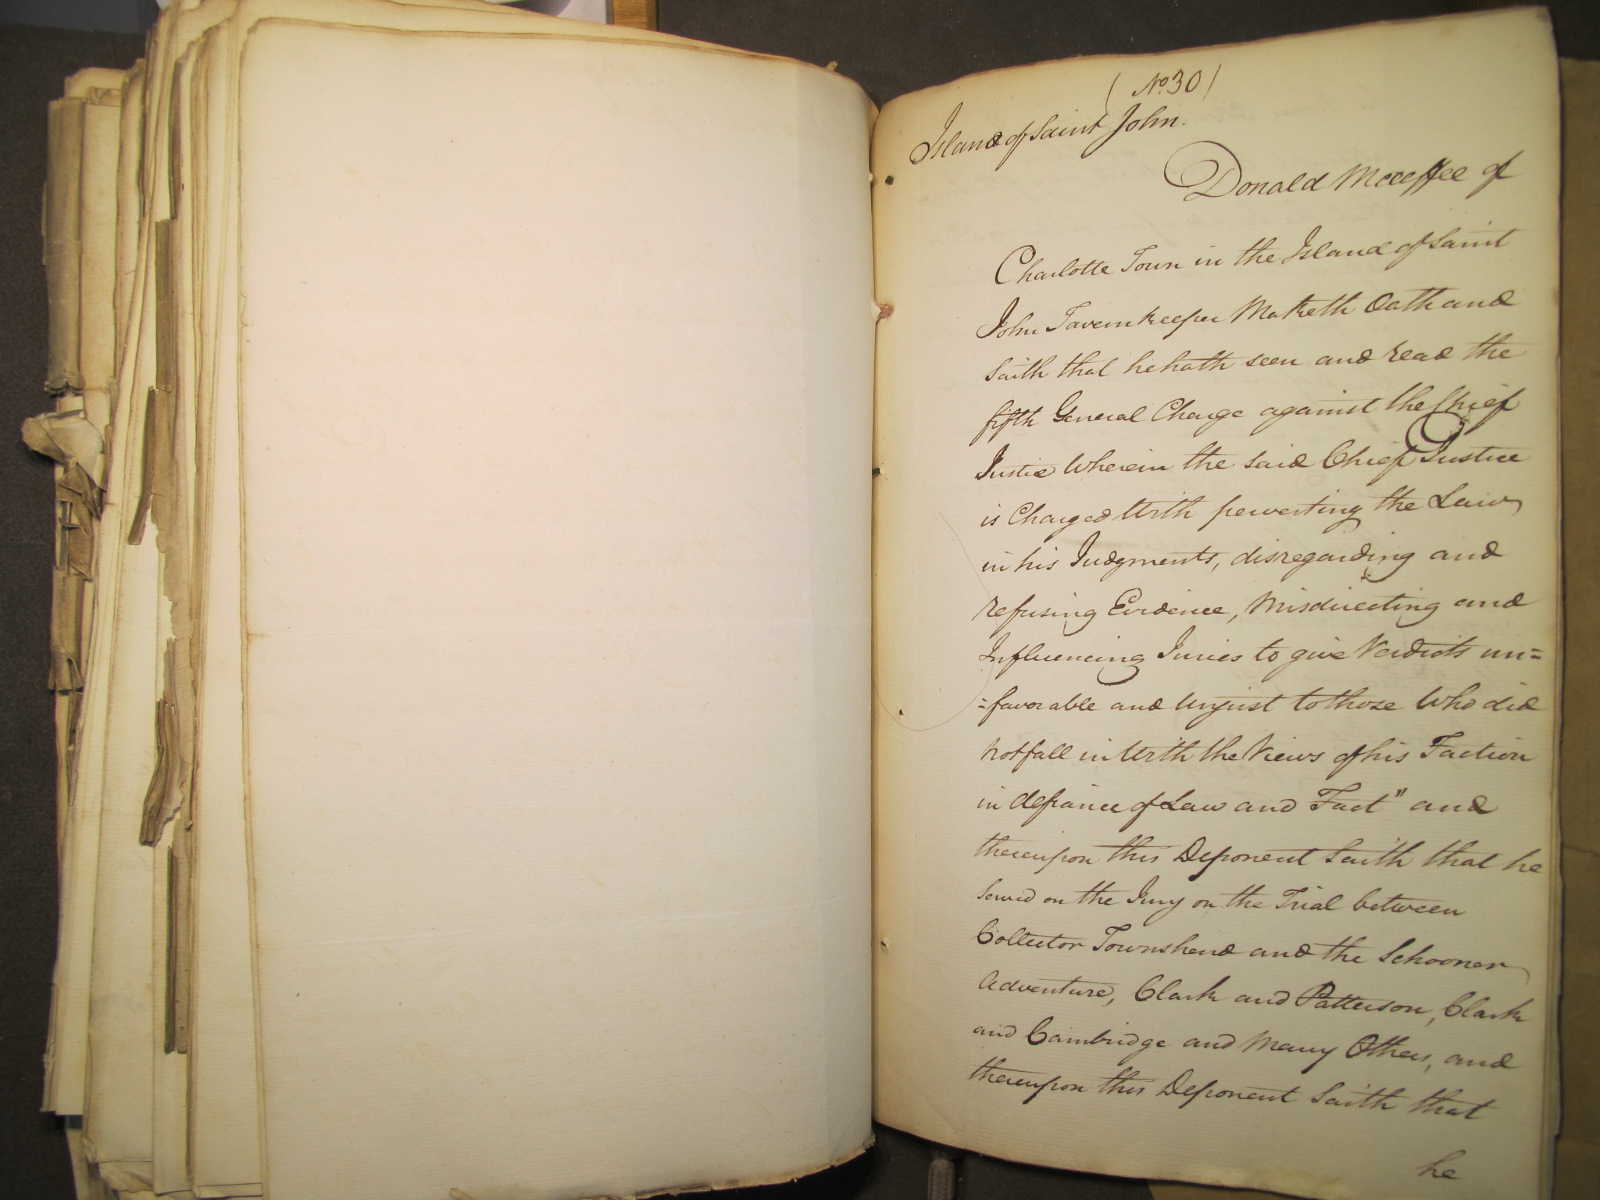 ( No. 30 )
Island of Saint John.
Donald Mcceffee of
Charlotte Town in the Island of Saint
John Tavernkeeper Maketh Oath and
Saith that he hath seen and read the
fifth General Charge against the Chief
Justice Wherein the said Chief Justice
is Charged With perverting the Law
in his Judgments, disregarding and
refusing Evidence, Misdirecting and
Influencing Juries to give Verdicts un=
=favorable and Unjust to those Who did
Not fall in With the Views of his Faction
in defiance of Law and Fact" and
thereupon this Deponent Saith that he
Served on the Jury on the Trial between
Collector Townshend and the Schooner
Adventure, Clark and Patterson, Clark
and Cambridge and Many Others, and
thereupon this Deponent Saith that
he